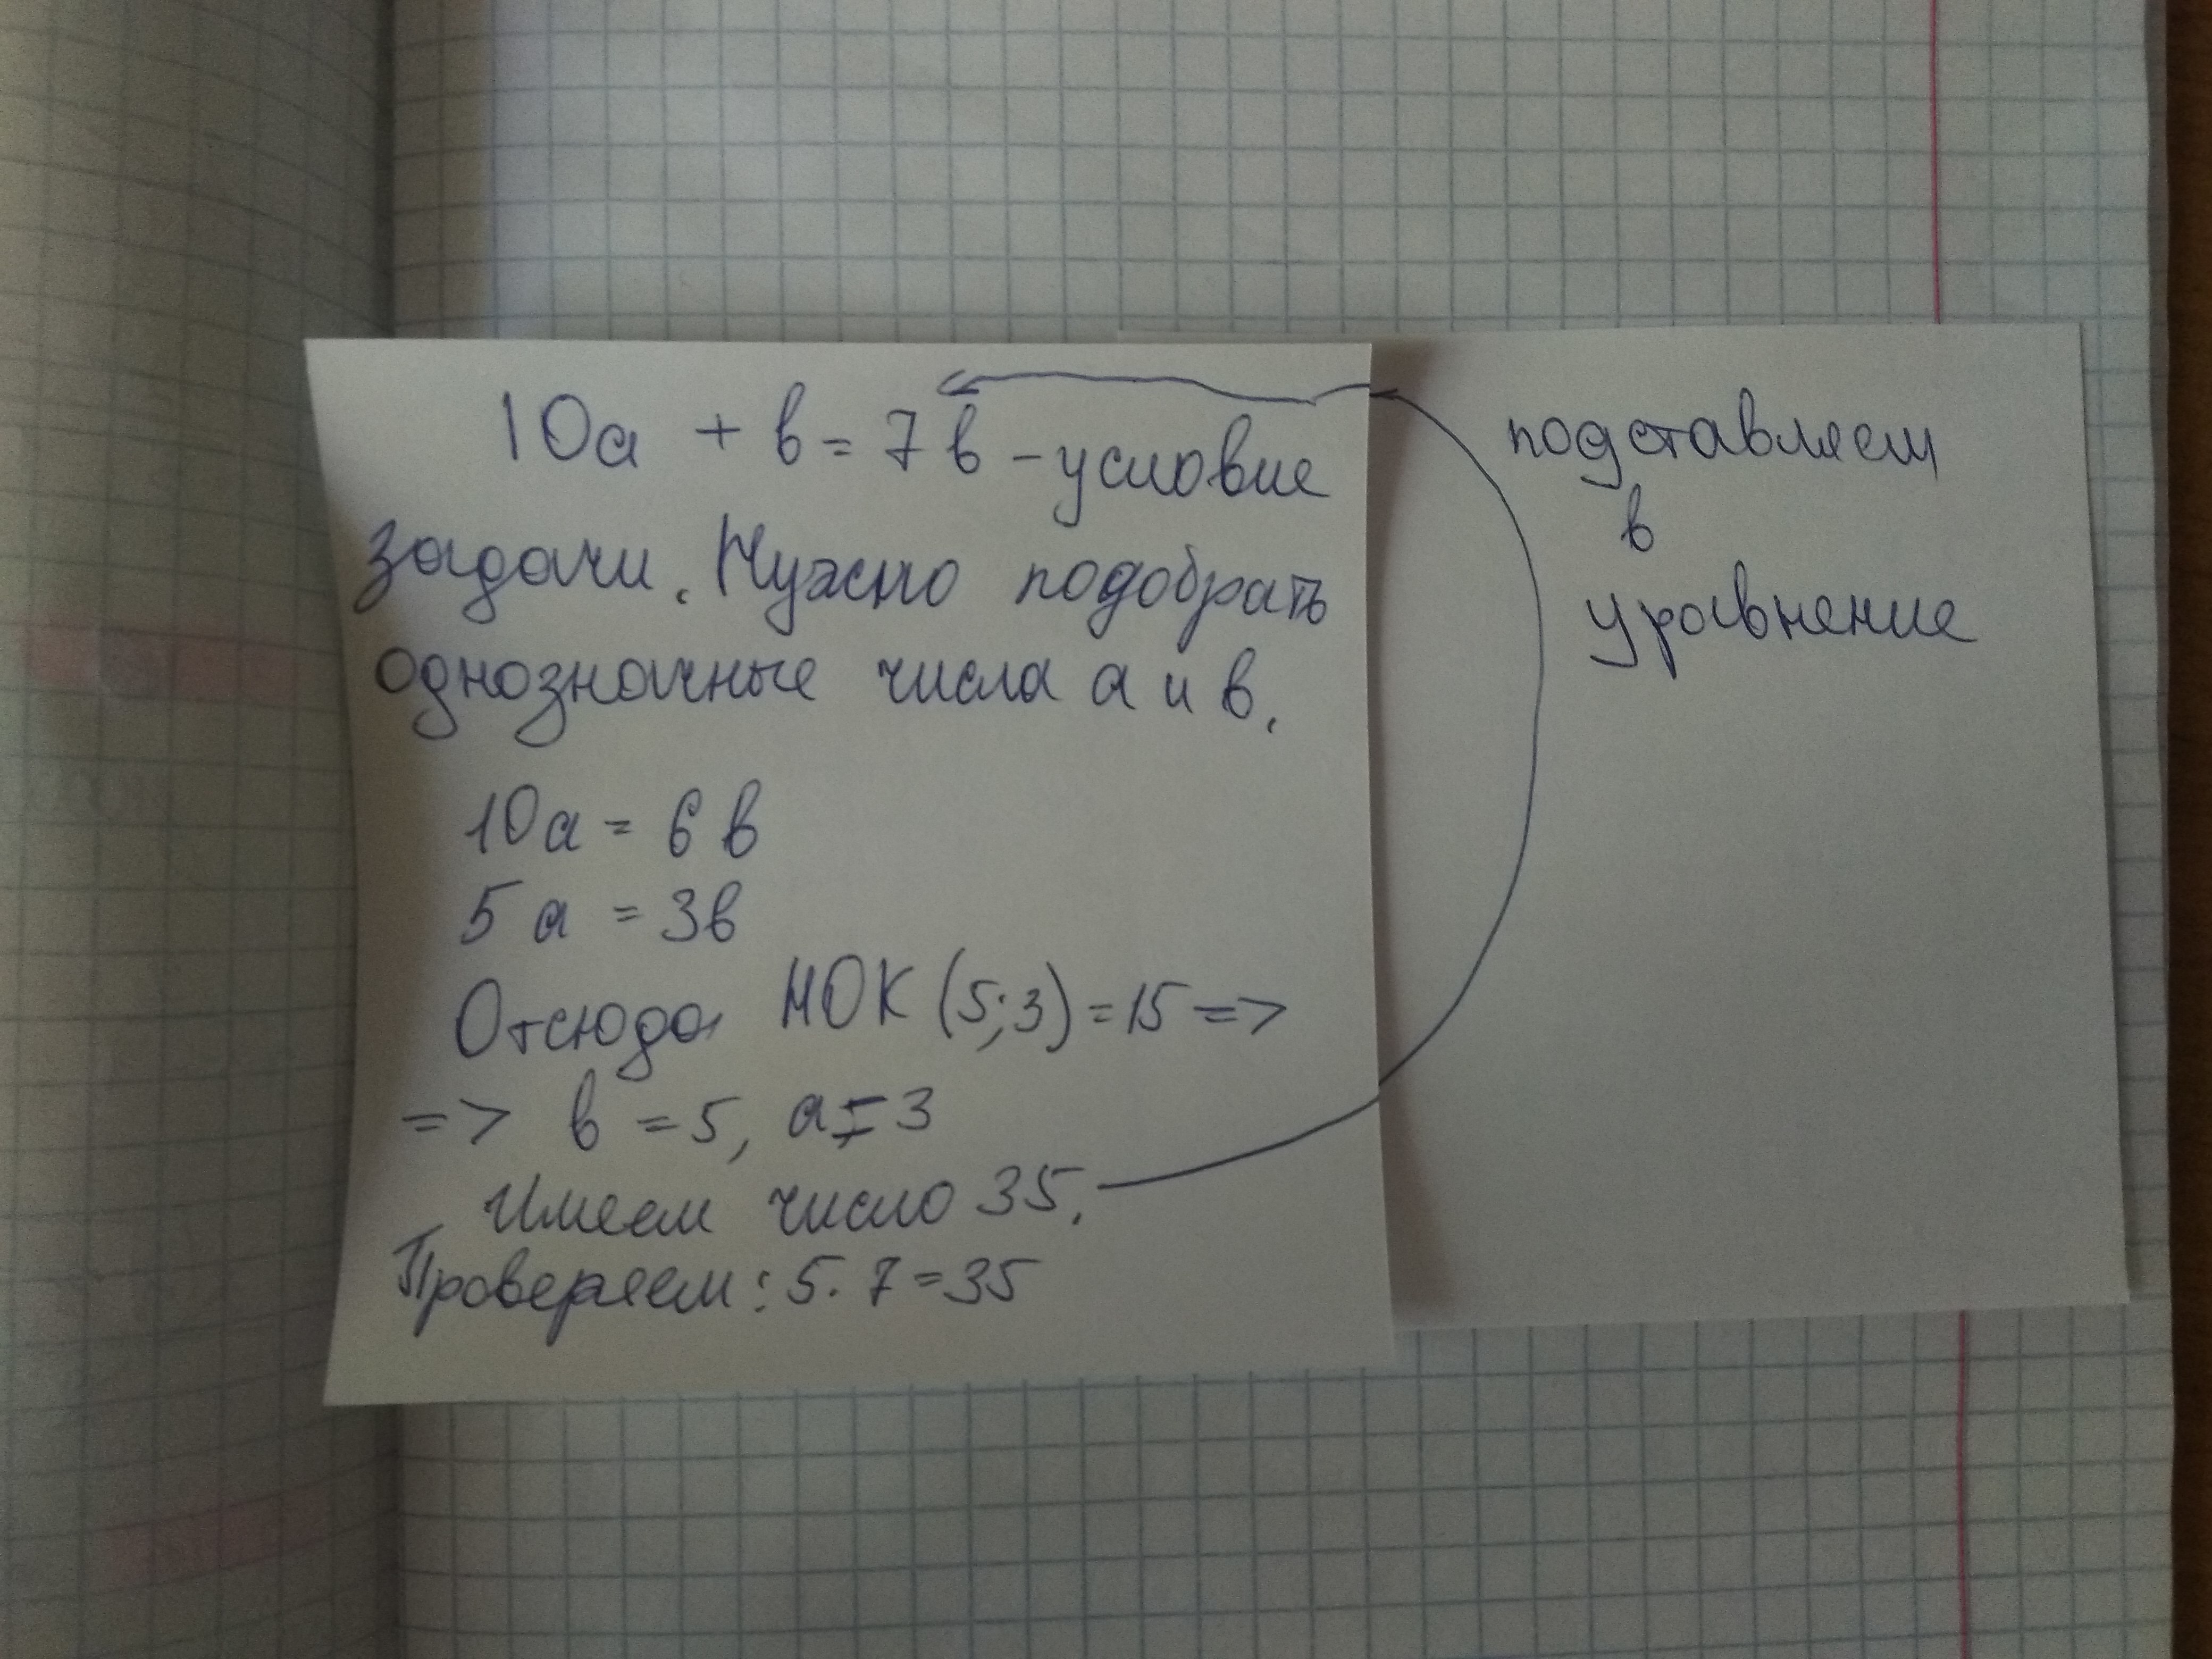 10а + в = 7в - условие
задачи. Нужно подобрать
однозначные числа а и в.
10а = 6в
5а = 3в
Отсюда НОК (5;3) = 15 =>
=> в = 5, а = 3
Имеем число 35.
Проверяем: 5·7=35
подставляем
в
уравнение